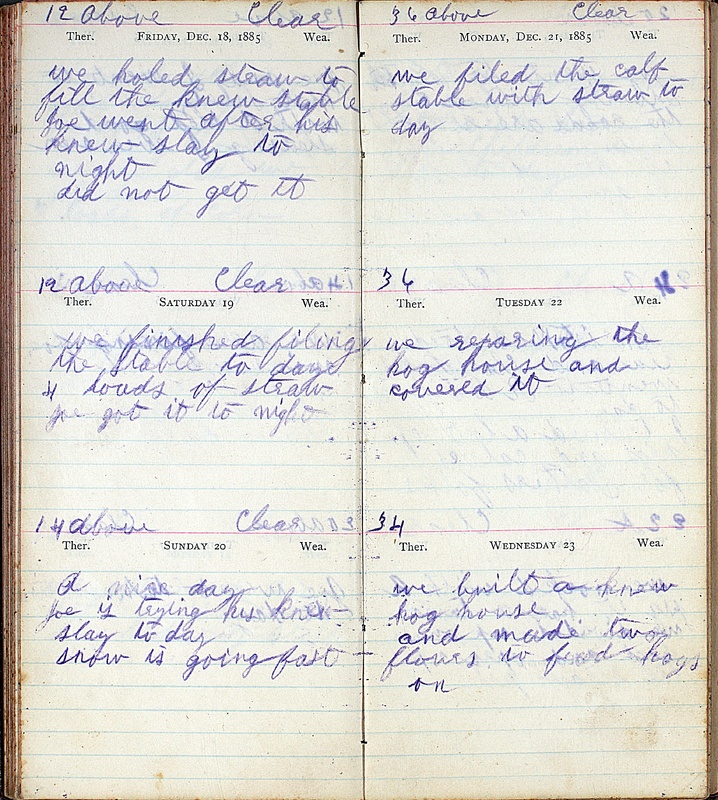 12 above Clear
Ther. FRIDAY, DEC. 18, 1885 Wea.
we holed straw to
fill the knew stable
Joe went after his
knew slay to
night
did not get it
12 above Clear
Ther. SATURDAY 19 Wea.
we finished filing
the stable to day
4 loads of straw
Joe got it to night
14 above Clear
Ther. SUNDAY 20 Wea.
A nice day
Joe is trying his knew
slay to day
snow is going fast
36 above Clear
Ther. MONDAY, DEC. 21, 1885 Wea.
we filed the calf
stable with straw to
day
36
Ther. TUESDAY 22 Wea.
we reparing the
hog house and
covered it
34
Ther. WEDNESDAY 23 Wea.
we built a knew
hog house
and made two
floures to feed hogs
on